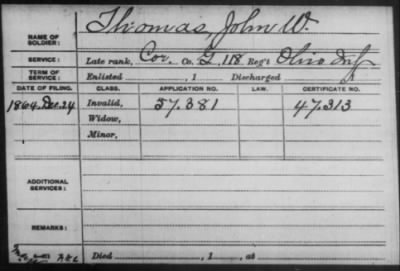 NAME OF SOLDIER: Thomas, John W.
SERVICE: Late rank, Cor. Co. G, 118 Reg't Ohio Inf
TERM OF SERVICE: Enlisted , 1 Discharged , 1
DATE OF FILING. CLASS. APPLICATION NO. LAW. CERTIFICATE NO.
1864, Dec. 24 Invalid, 57.381 47.313
Widow,
Minor,
ADDITIONAL SERVICES:
REMARKS:
Died , 1 , at